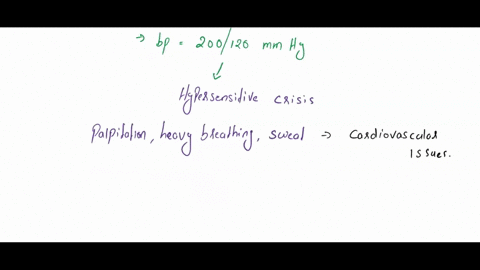 → bp = 200/120 mm Hg
↓
Hypersensitive crisis
Palpitation, heavy breathing, sweat → Cardiovascular
issues.